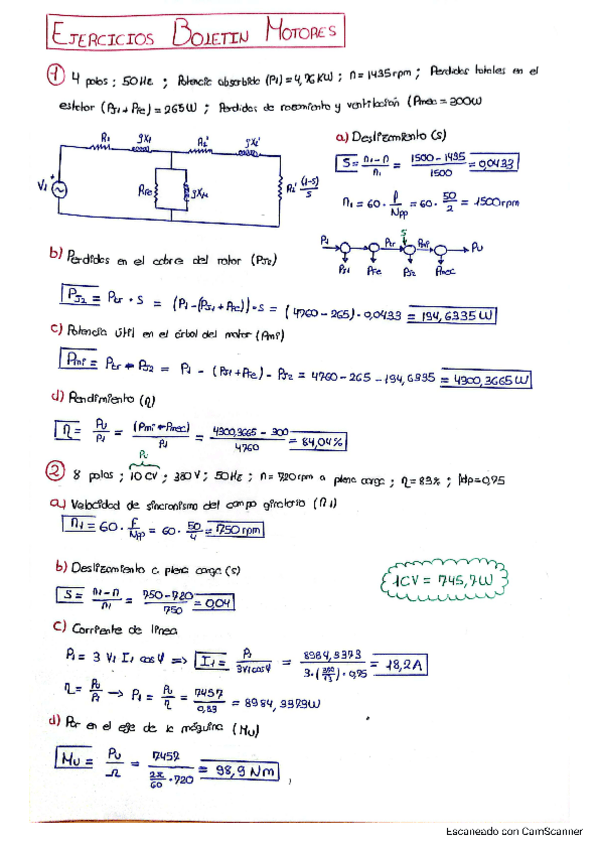 EJERCICIOS BOLETIN MOTORES
① 4 polos ; 50 Hz ; Potencia absorbida (P1) = 4,76 KW ; n = 1435 rpm ; Perdidas totales en el
estator (PJ1 + PFe) = 265 W ; Perdidas de rozamiento y ventilación (Pmec = 300W
R1 jX1 R2' jX2'
V1 RFe jXμ R2' (1-S)/S
a) Deslizamiento (s)
S = (n1 - n)/n1 = (1500 - 1435)/1500 = 0,0433
n1 = 60 · f/Npp = 60 · 50/2 = 1500 rpm
P1 Ptr S Pmi Pu
PJ1 PFe PJ2 Pmec
b) Perdidas en el cobre del rotor (PJ2)
PJ2 = Ptr · S = (P1 - (PJ1 + PFe)) · S = (4760 - 265) · 0,0433 = 194,6335 W
c) Potencia útil en el árbol del motor (Pmi)
Pmi = Ptr - PJ2 = P1 - (PJ1 + PFe) - PJ2 = 4760 - 265 - 194,6335 = 4300,3665 W
d) Rendimiento (η)
η = Pu/P1 = (Pmi - Pmec)/P1 = (4300,3665 - 300)/4760 = 84,04%
Pu
② 8 polos ; 10 CV ; 380 V ; 50 Hz ; n = 720 rpm a plena carga ; η = 83% ; fdp = 0,75
a) Velocidad de sincronismo del campo giratorio (n1)
n1 = 60 · f/Npp = 60 · 50/4 = 750 rpm
b) Deslizamiento a plena carga (s)
S = (n1 - n)/n1 = (750 - 720)/750 = 0,04
1 CV = 745,7 W
c) Corriente de linea
P1 = 3 V1 I1 cos φ => I1 = P1/(3 V1 cos φ) = 8984,3373/(3 · (380/√3) · 0,75) = 18,2 A
η = Pu/P1 → P1 = Pu/η = 7457/0,83 = 8984,3373 W
d) Par en el eje de la máquina (Mu)
Mu = Pu/Ω = 7457/(2π/60 · 720) = 98,9 Nm
Escaneado con CamScanner